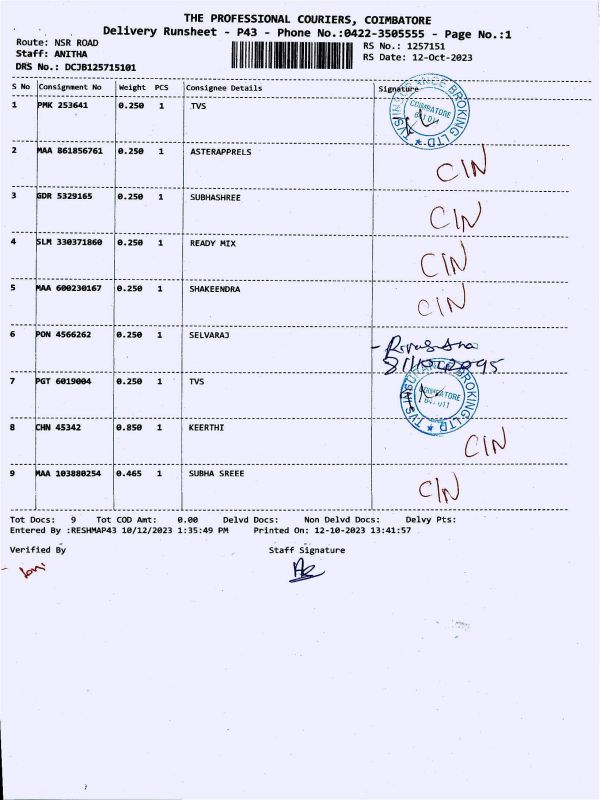 THE PROFESSIONAL COURIERS, COIMBATORE
Delivery Runsheet - P43 - Phone No.:0422-3505555 - Page No.:1
Route: NSR ROAD RS No.: 1257151
Staff: ANITHA RS Date: 12-Oct-2023
DRS No.: DCJB125715101
S No Consignment No Weight PCS Consignee Details Signature
1 PMK 253641 0.250 1 TVS
TVS INSURANCE BROKING LTD
COIMBATORE
2 MAA 861856761 0.250 1 ASTERAPPRELS CIN
3 GDR 5329165 0.250 1 SUBHASHREE CIN
4 SLM 330371860 0.250 1 READY MIX CIN
5 MAA 600230167 0.250 1 SHAKEENDRA CIN
6 PON 4566262 0.250 1 SELVARAJ
7 PGT 6019004 0.250 1 TVS
TVS INSURANCE BROKING LTD
COIMBATORE
8 CHN 45342 0.850 1 KEERTHI CIN
9 MAA 103880254 0.465 1 SUBHA SREEE CIN
Tot Docs: 9 Tot COD Amt: 0.00 Delvd Docs: Non Delvd Docs: Delvy Pts:
Entered By :RESHMAP43 10/12/2023 1:35:49 PM Printed On: 12-10-2023 13:41:57
Verified By Staff Signature